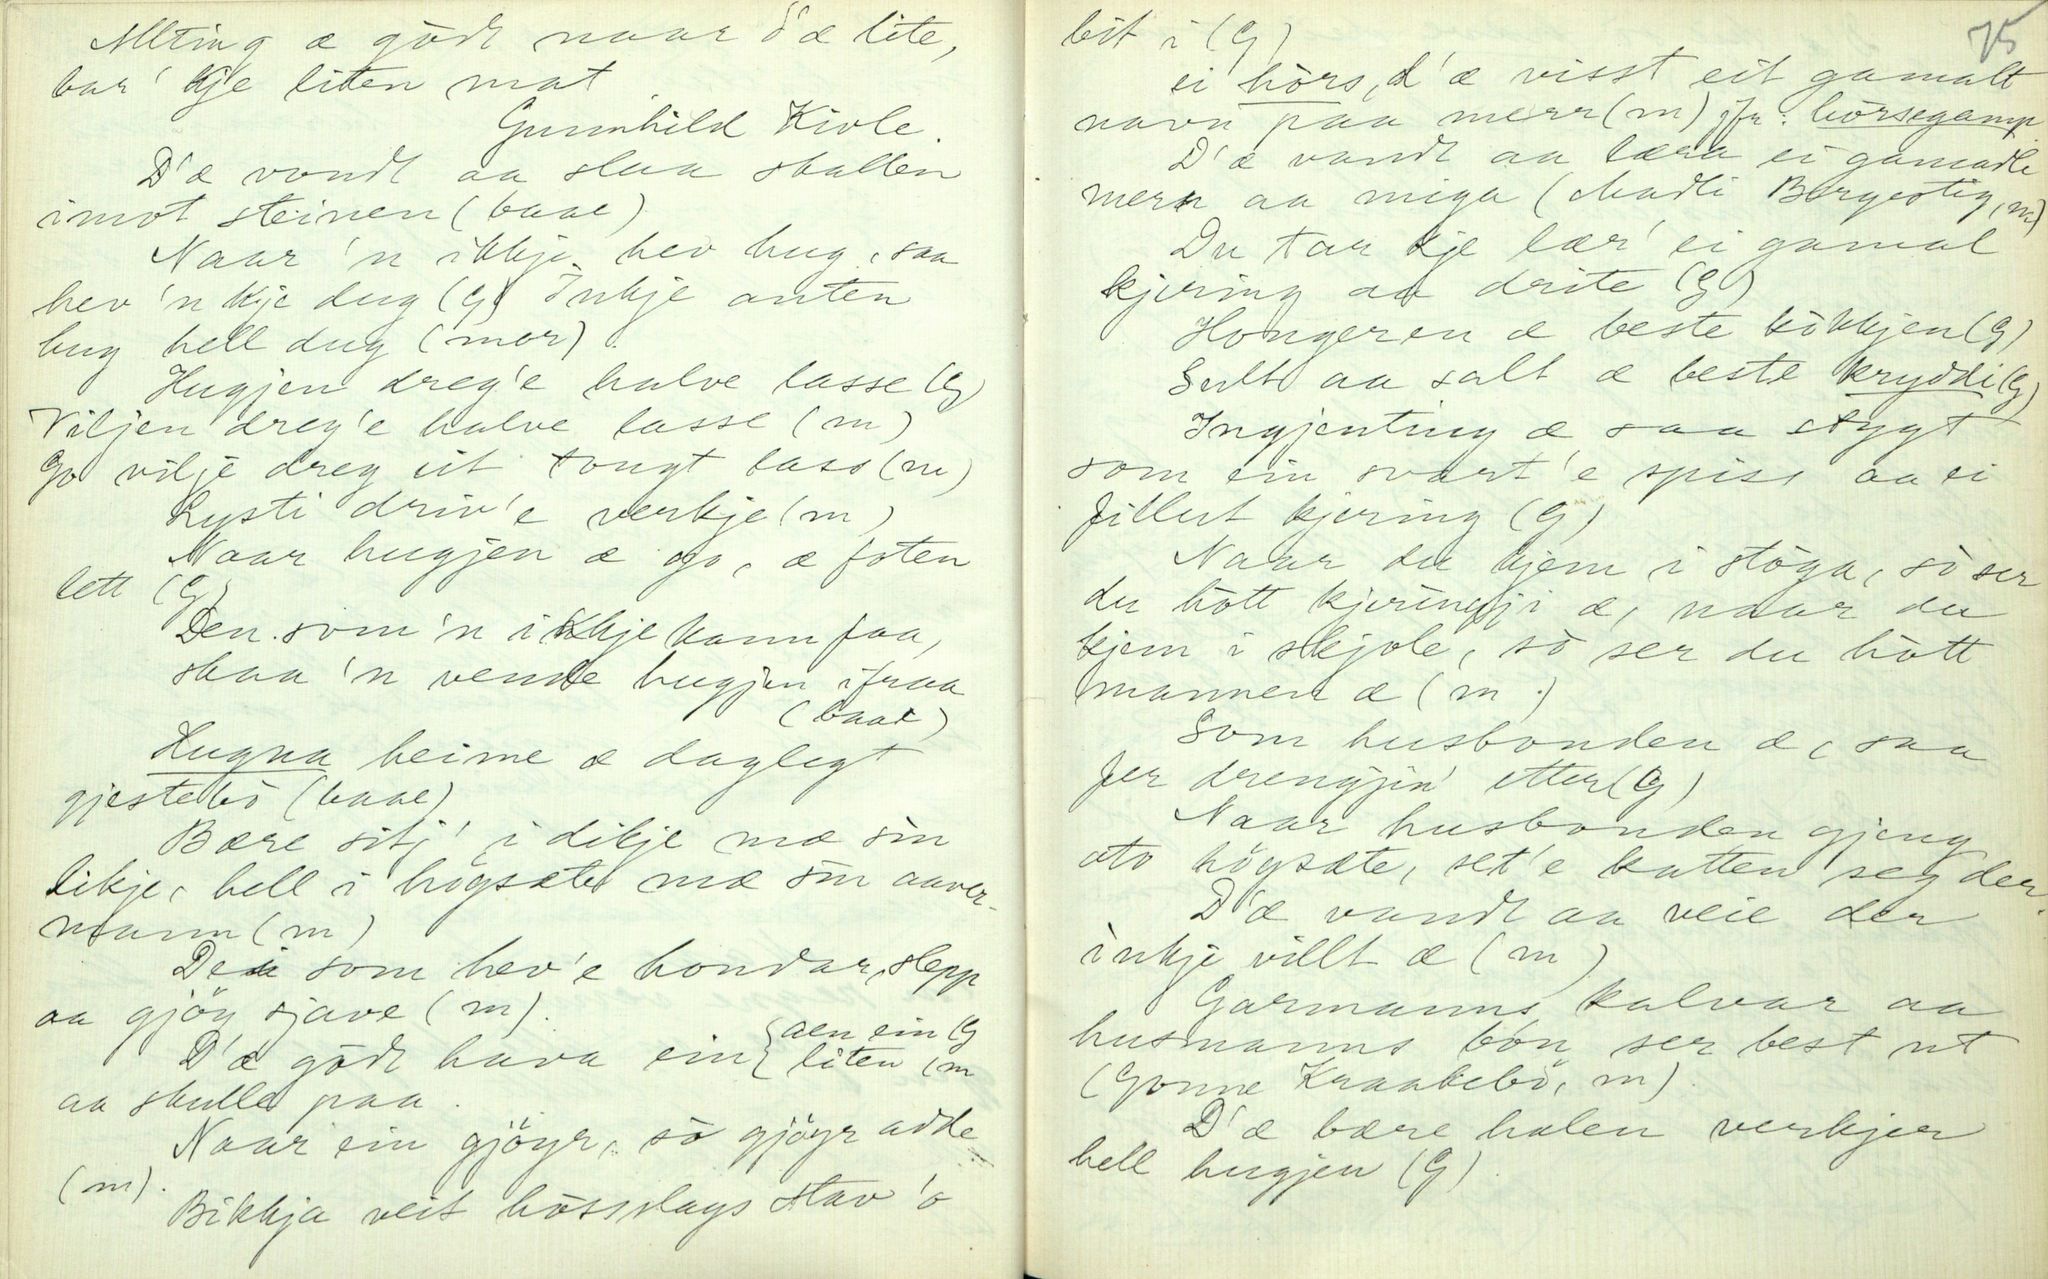 Allting æ gödt naar d'æ lite,
bar' kje liten mat.
Gunnhild Kivle.
D'æ vondt aa slaa skallen
imot steinen (baae)
Naar 'n ikkje hev hug, saa
hev 'n kje dug (G) Inkje anten
hug hell dug (mor).
Hugjen dreg'e halve lasse (G)
Viljen dreg'e halve lasse (m)
Go vilje dreg eit tongt lass (m)
Lysti driv'e verkje (m)
Naar hugjen æ go, æ foten
lett (G)
Den som 'n ikkje kann faa,
skaa 'n vende hugjen ifraa
(baae)
Hugna heime æ daglegt
gjestebö (baae)
Bære sitj' i dikje mæ sin
likje, hell i högsæte mæ sin aaver-
mann (m)
Dei som hev'e hondar, slepp
aa gjöy sjave (m).
D'æ gödt hava ein { aen ein (G
liten (m
aa skulle paa.
Naar ein gjöyr, sò gjöyr adde
(m).
Bikkja veit hòsslags stav 'o
75
bit i (G)
ei hòrs, d'æ visst eit gamalt
navn paa merr (m) jfr. hòrsegamp.
D'æ vandt aa læra ei gamadle
merr aa miga (Madli Borgestig, m)
Du tar kje lær' ei gamal
kjering aa drite (G)
Hongeren æ beste kökkjen (G)
Sult aa salt æ beste kryddi (G)
Ingjenting æ saa stygt
som ein svart'e spiss aa ei
fillut kjering (G)
Naar du kjem i stòga, sò ser
du hòtt kjeringji æ, naar du
kjem i skjole, sò ser du hòtt
mannen æ (m.)
Som husbonden æ, saa
fer drengjin' etter (G)
Naar husbonden gjeng
utu högsæte, set'e katten seg der.
D'æ vandt aa veie der
inkje villt æ (m)
Garmanns kalvar aa
husmanns bòn ser best ut
(Gonne Kraakebö, m).
D'æ bære halen verkjer
hell hugjen (G).